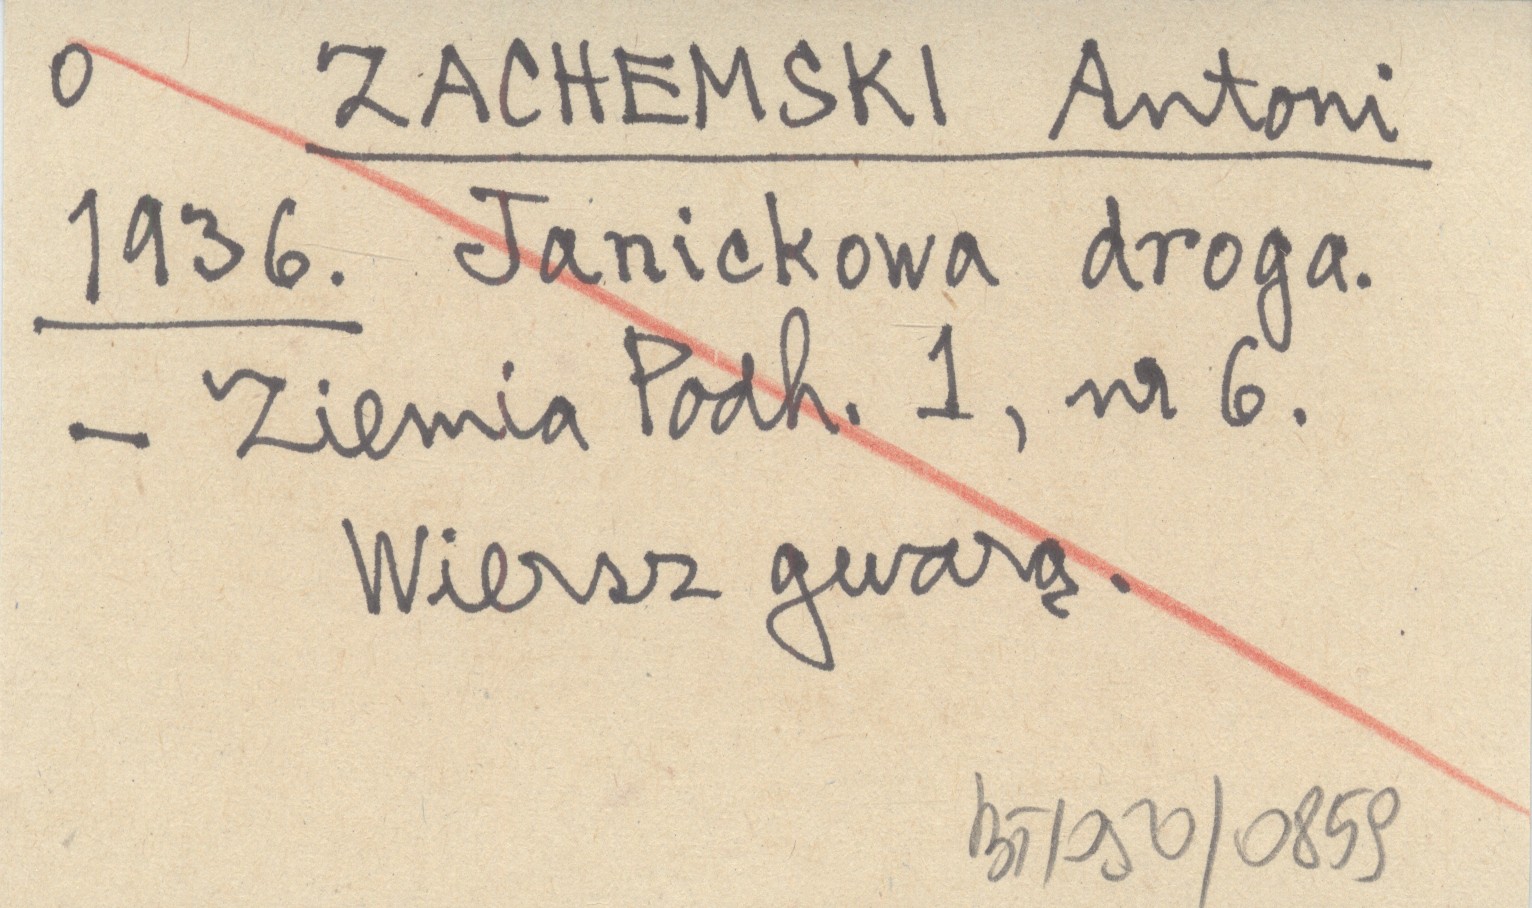 O ZACHEMSKI Antoni
1936. Janickowa droga.
- Ziemia Podh. 1, nr 6.
Wiersz gwarą.
BT/950/0859